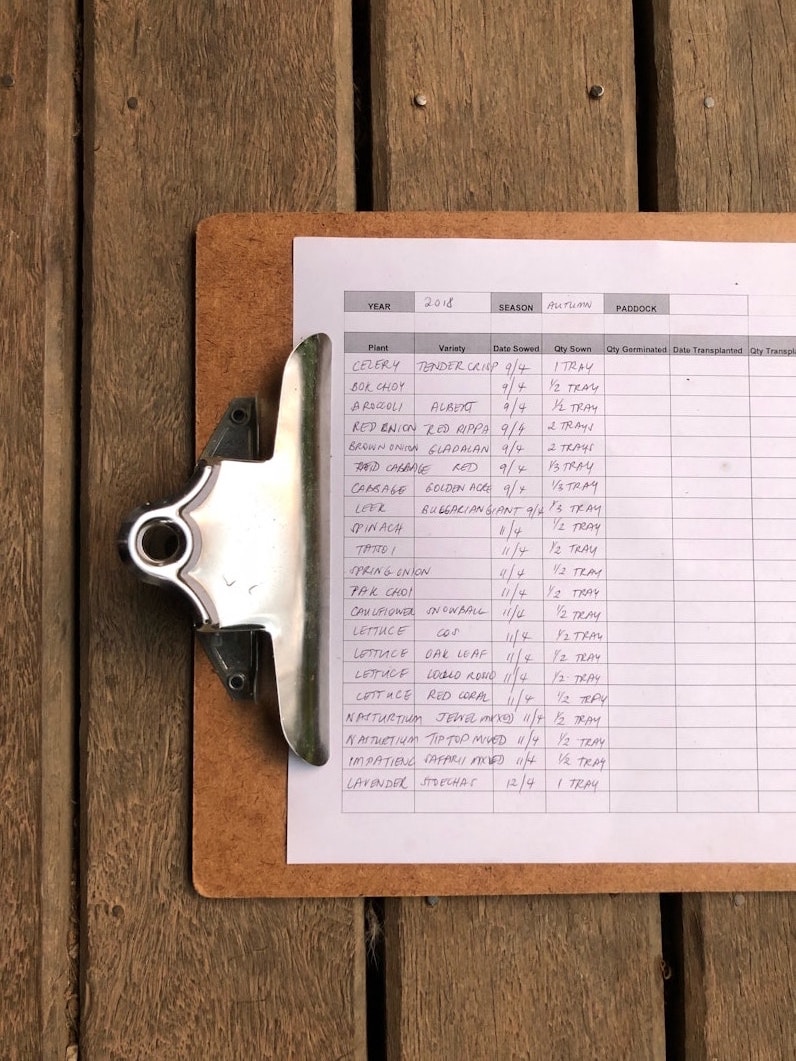 YEAR 2018 SEASON AUTUMN PADDOCK
Plant Variety Date Sowed Qty Sown Qty Germinated Date Transplanted Qty Transpla
CELERY TENDER CRISP 9/4 1 TRAY
BOK CHOY 9/4 1/2 TRAY
BROCCOLI ALBERT 9/4 1/2 TRAY
RED ONION RED RIPPA 9/4 2 TRAYS
BROWN ONION GLADALAN 9/4 2 TRAYS
CABBAGE RED 9/4 1/3 TRAY
CABBAGE GOLDEN ACRE 9/4 1/3 TRAY
LEEK BULGARIAN GIANT 9/4 1/3 TRAY
SPINACH 11/4 1/2 TRAY
TATSOI 11/4 1/2 TRAY
SPRING ONION 11/4 1/2 TRAY
PAK CHOI 11/4 1/2 TRAY
CAULIFLOWER SNOWBALL 11/4 1/2 TRAY
LETTUCE COS 11/4 1/2 TRAY
LETTUCE OAK LEAF 11/4 1/2 TRAY
LETTUCE LOLLO ROSSO 11/4 1/2 TRAY
LETTUCE RED CORAL 11/4 1/2 TRAY
NASTURTIUM JEWEL MIXED 11/4 1/2 TRAY
NASTURTIUM TIP TOP MIXED 11/4 1/2 TRAY
IMPATIENS SAFARII MIXED 11/4 1/2 TRAY
LAVENDER STOECHAS 12/4 1 TRAY